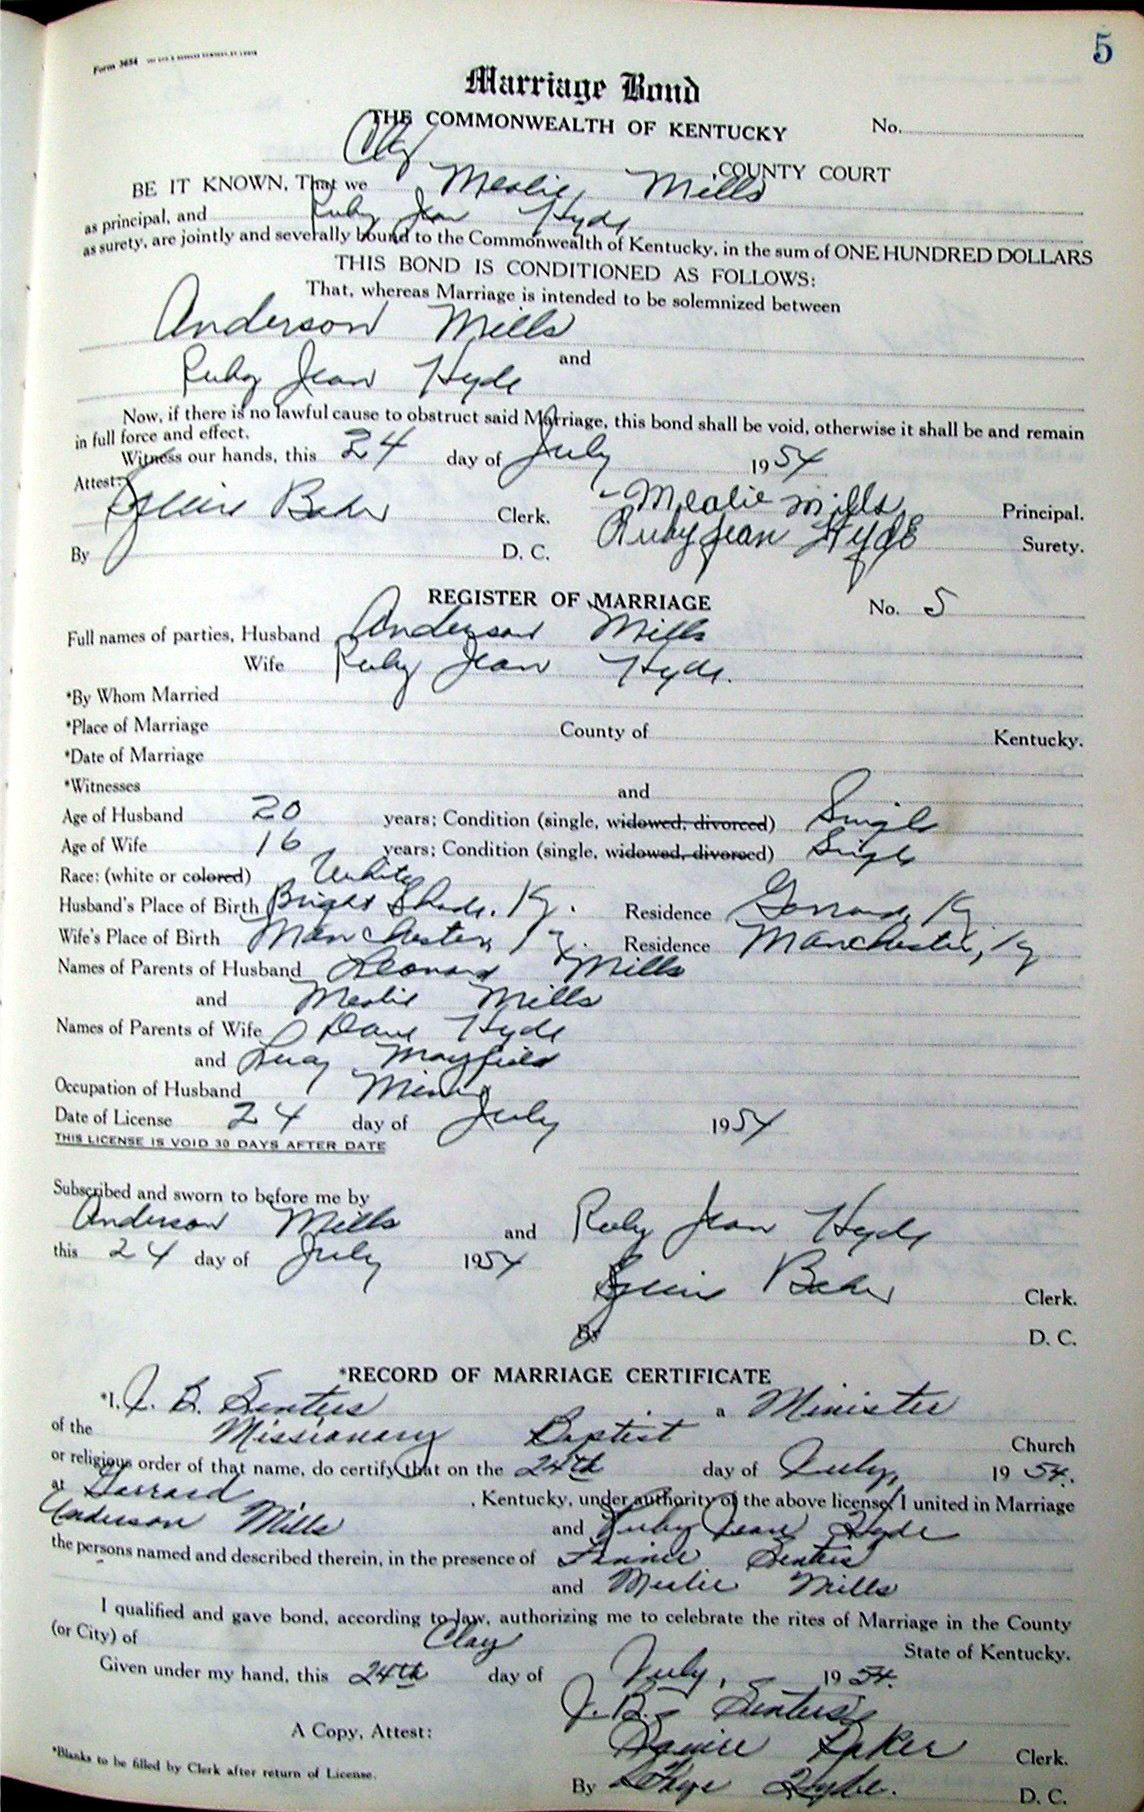 5
Form 3654
Marriage Bond
THE COMMONWEALTH OF KENTUCKY No.
Clay COUNTY COURT
BE IT KNOWN, That we Mealie Mills
as principal, and Ruby Jean Hyde
as surety, are jointly and severally bound to the Commonwealth of Kentucky, in the sum of ONE HUNDRED DOLLARS
THIS BOND IS CONDITIONED AS FOLLOWS:
That, whereas Marriage is intended to be solemnized between
Anderson Mills
and
Ruby Jean Hyde
Now, if there is no lawful cause to obstruct said Marriage, this bond shall be void, otherwise it shall be and remain
in full force and effect.
Witness our hands, this 24 day of July 1954
Attest: Mealie Mills Principal.
Baker Clerk. Ruby Jean Hyde Surety.
By D. C.
REGISTER OF MARRIAGE No. 5
Full names of parties, Husband Anderson Mills
Wife Ruby Jean Hyde.
*By Whom Married
*Place of Marriage County of Kentucky.
*Date of Marriage
*Witnesses and
Age of Husband 20 years; Condition (single, widowed, divorced) Single
Age of Wife 16 years; Condition (single, widowed, divorced) Single
Race: (white or colored) White
Husband's Place of Birth Bright Shade, Ky. Residence Garrard, Ky
Wife's Place of Birth Manchester, Ky. Residence Manchester, Ky
Names of Parents of Husband Leonard Mills
and Mealie Mills
Names of Parents of Wife Dave Hyde
and Lucy Mayfield
Occupation of Husband Mining
Date of License 24 day of July 1954
THIS LICENSE IS VOID 30 DAYS AFTER DATE
Subscribed and sworn to before me by
Anderson Mills and Ruby Jean Hyde
this 24 day of July 1954
Baker Clerk.
By D. C.
*RECORD OF MARRIAGE CERTIFICATE
*I, J. B. Senters a Minister
of the Missionary Baptist Church
or religious order of that name, do certify that on the 24th day of July, 1954.
at Garrard, Kentucky, under authority of the above license, I united in Marriage
Anderson Mills and Ruby Jean Hyde
the persons named and described therein, in the presence of Senters
and Mealie Mills
I qualified and gave bond, according to law, authorizing me to celebrate the rites of Marriage in the County
(or City) of Clay State of Kentucky.
Given under my hand, this 24th day of July, 1954.
J. B. Senters
A Copy, Attest: Baker Clerk.
*Blanks to be filled by Clerk after return of License.
By Hyde. D. C.